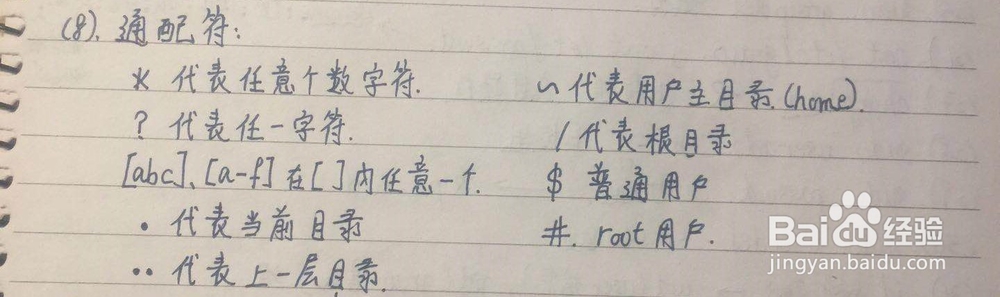 (8). 通配符:
* 代表任意个数字符.
? 代表任一字符.
[abc]、[a-f] 在[ ]内任意一个.
· 代表当前目录
·· 代表上一层目录.
~ 代表用户主目录.(home).
/ 代表根目录
$ 普通用户
#. root用户.
Baidu经验
jingyan.baidu.com